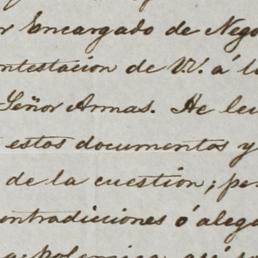 r Encargado de Nego
ntestacion de VV. á l
Señor Armas. He lei
estos documentos y
de la cuestion; per
ontradicciones ó alega